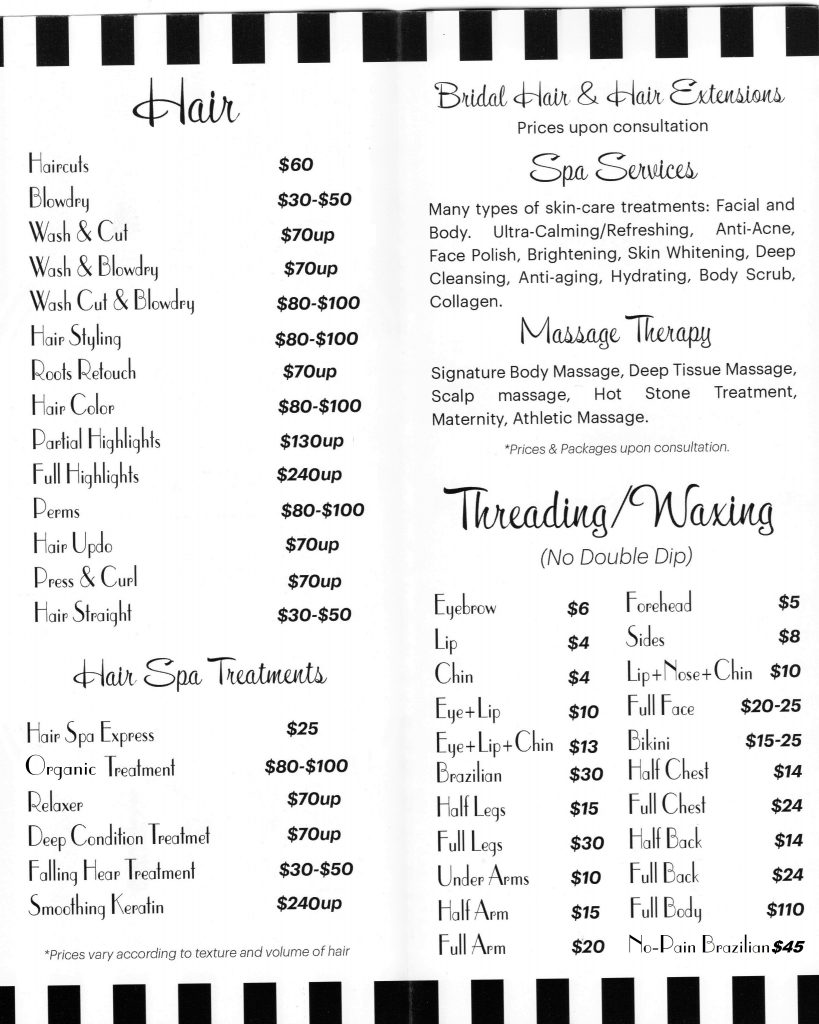 Hair
Haircuts $60
Blowdry $30-$50
Wash & Cut $70up
Wash & Blowdry $70up
Wash Cut & Blowdry $80-$100
Hair Styling $80-$100
Roots Retouch $70up
Hair Color $80-$100
Partial Highlights $130up
Full Highlights $240up
Perms $80-$100
Hair Updo $70up
Press & Curl $70up
Hair Straight $30-$50
Hair Spa Treatments
Hair Spa Express $25
Organic Treatment $80-$100
Relaxer $70up
Deep Condition Treatmet $70up
Falling Hear Treatment $30-$50
Smoothing Keratin $240up
*Prices vary according to texture and volume of hair
Bridal Hair & Hair Extensions
Prices upon consultation
Spa Services
Many types of skin-care treatments: Facial and
Body. Ultra-Calming/Refreshing, Anti-Acne,
Face Polish, Brightening, Skin Whitening, Deep
Cleansing, Anti-aging, Hydrating, Body Scrub,
Collagen.
Massage Therapy
Signature Body Massage, Deep Tissue Massage,
Scalp massage, Hot Stone Treatment,
Maternity, Athletic Massage.
*Prices & Packages upon consultation.
Threading/Waxing
(No Double Dip)
Eyebrow $6
Lip $4
Chin $4
Eye+Lip $10
Eye+Lip+Chin $13
Brazilian $30
Half Legs $15
Full Legs $30
Under Arms $10
Half Arm $15
Full Arm $20
Forehead $5
Sides $8
Lip+Nose+Chin $10
Full Face $20-25
Bikini $15-25
Half Chest $14
Full Chest $24
Half Back $14
Full Back $24
Full Body $110
No-Pain Brazilian $45